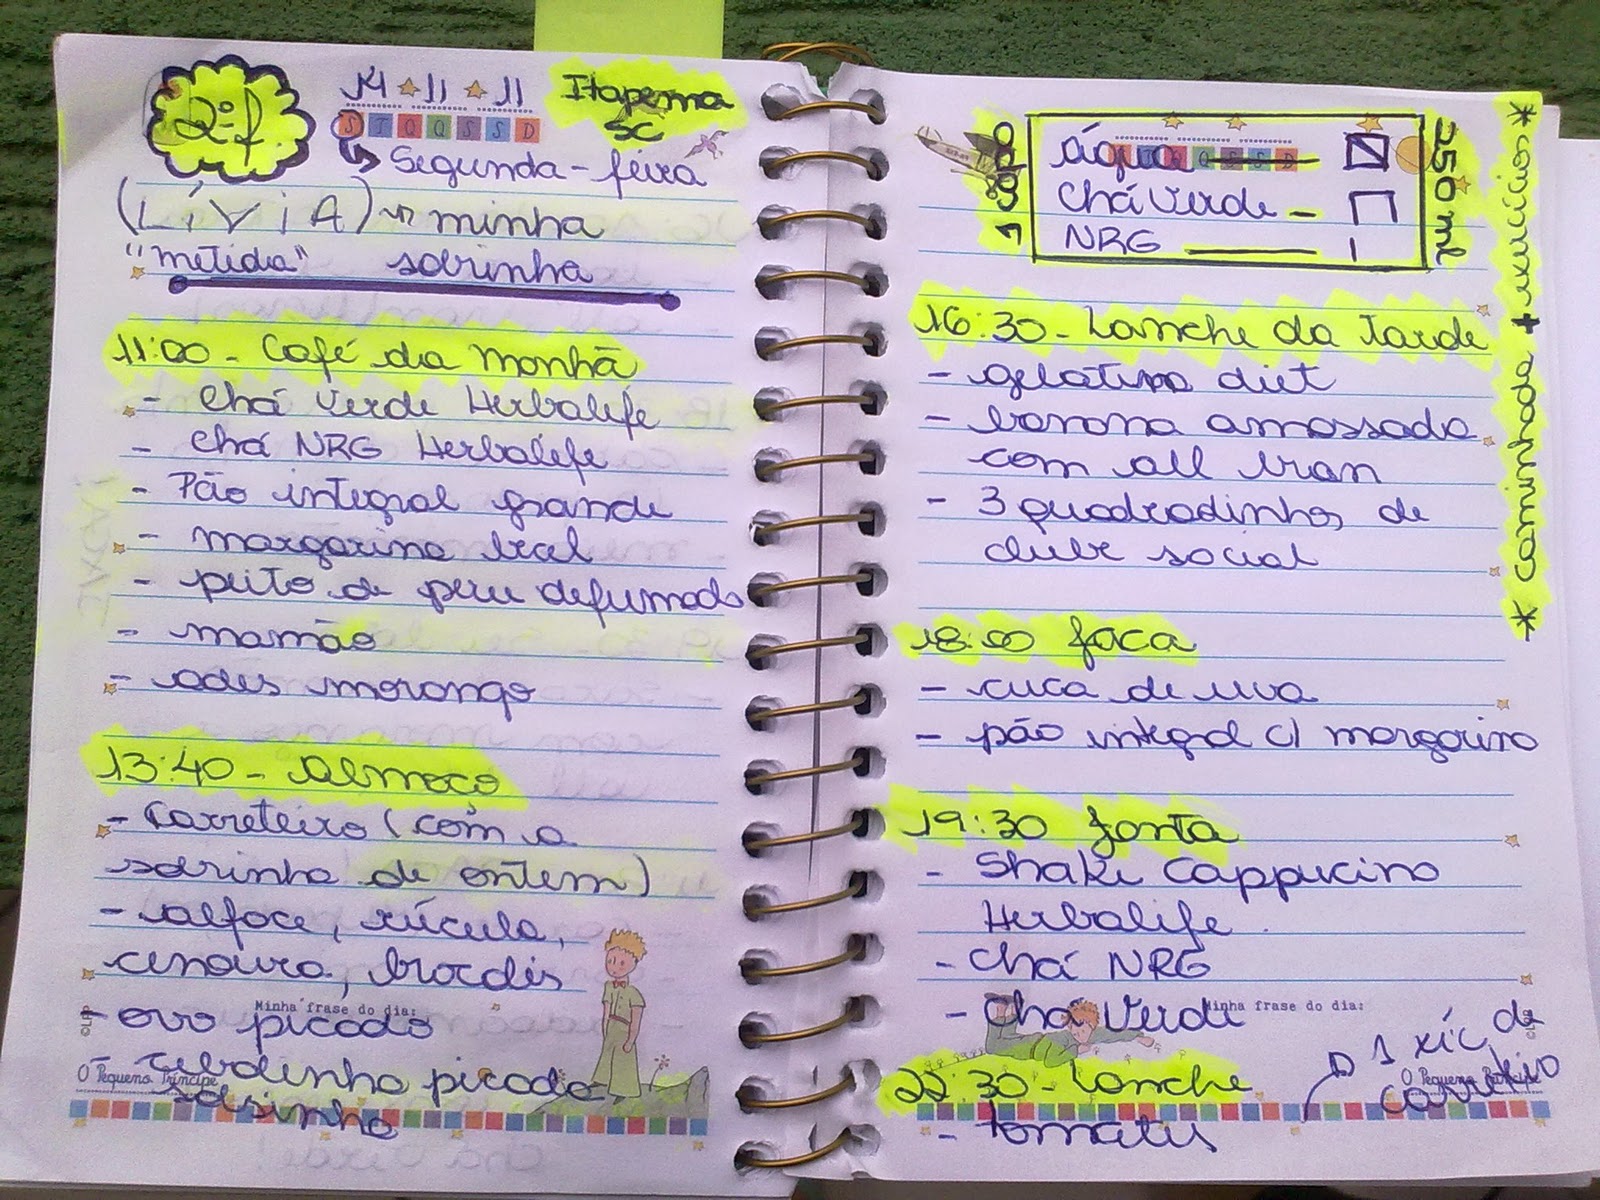 2ª f
14 ★ 11 ★ 11
Itapema
SC
S T Q Q S S D
Segunda-feira
(LÍViA) minha
"metida" sobrinha
11:00 - Café da manhã
- Chá Verde Herbalife
- chá NRG Herbalife
- Pão integral grande
- margarina becel
- peito de peru defumado
- mamão
- ades morango
13:40 - Almoço
- Carreteiro (com a
sobrinha de ontem)
- alface, rúcula,
cenoura, brócolis
Minha frase do dia:
- ovo picado
- cebolinha picada
O Pequeno Príncipe
©LPP
1 copo
água
Q S S D
Chá Verde -
NRG
250 ml
* caminhada + exercícios *
16:30 - Lanche da Tarde
- gelatina diet
- banana amassada
com all bran
- 3 quadradinhos de
clube social
18:00 faca
- cuca de uva
- pão integral c/ margarina
19:30 janta
- Shake Cappucino
Herbalife
- Chá NRG
- Chá Verde
Minha frase do dia:
1 xíc. de
O Pequeno Príncipe
22:30 - Lanche
- tomates